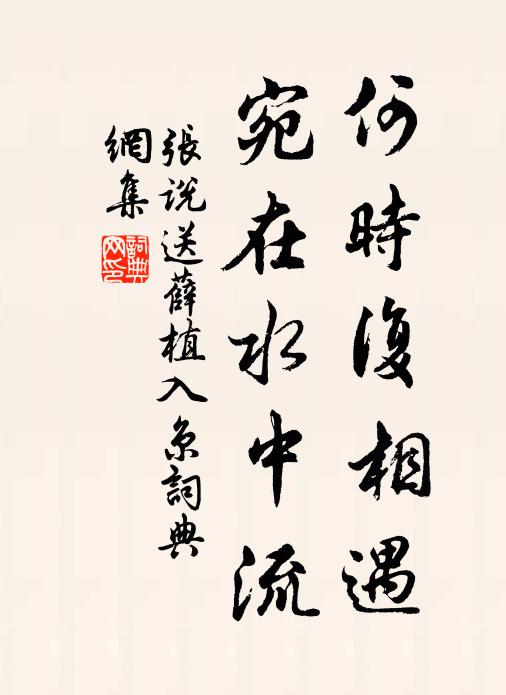 何時復相遇
宛在水中流
張説送薛植入京詞典
網集
詞典
网印